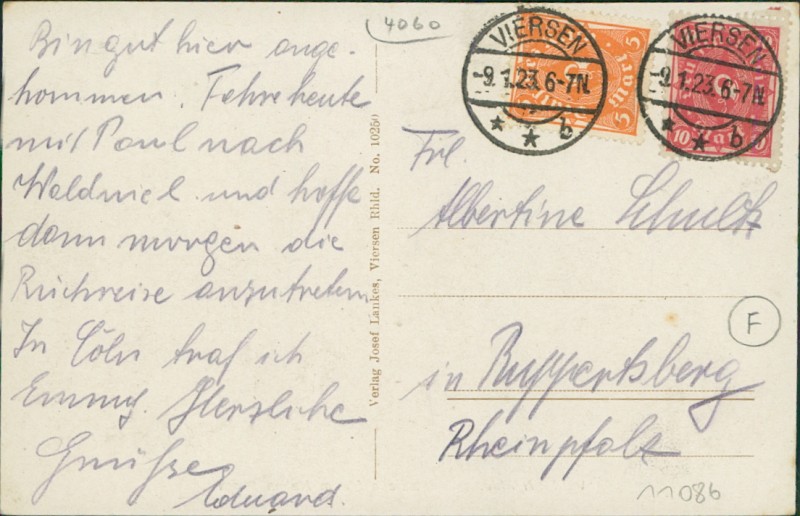 4060
Bin gut hier ange-
kommen. Fahre heute
mit Paul nach
Waldniel und hoffe
dann morgen die
Rückreise anzutreten
In Cöln traf ich
Emmy. Herzliche
Grüße
Eduard.
Verlag Josef Laukes, Viersen Rhld. No. 10250
VIERSEN
-9.1.23.6-7N.
* * b
5 5
5 5
VIERSEN
-9.1.23.6-7N.
* * b
10
Frl.
Albertine Schultz
F
in Ruppertsberg
Rheinpfalz
11086